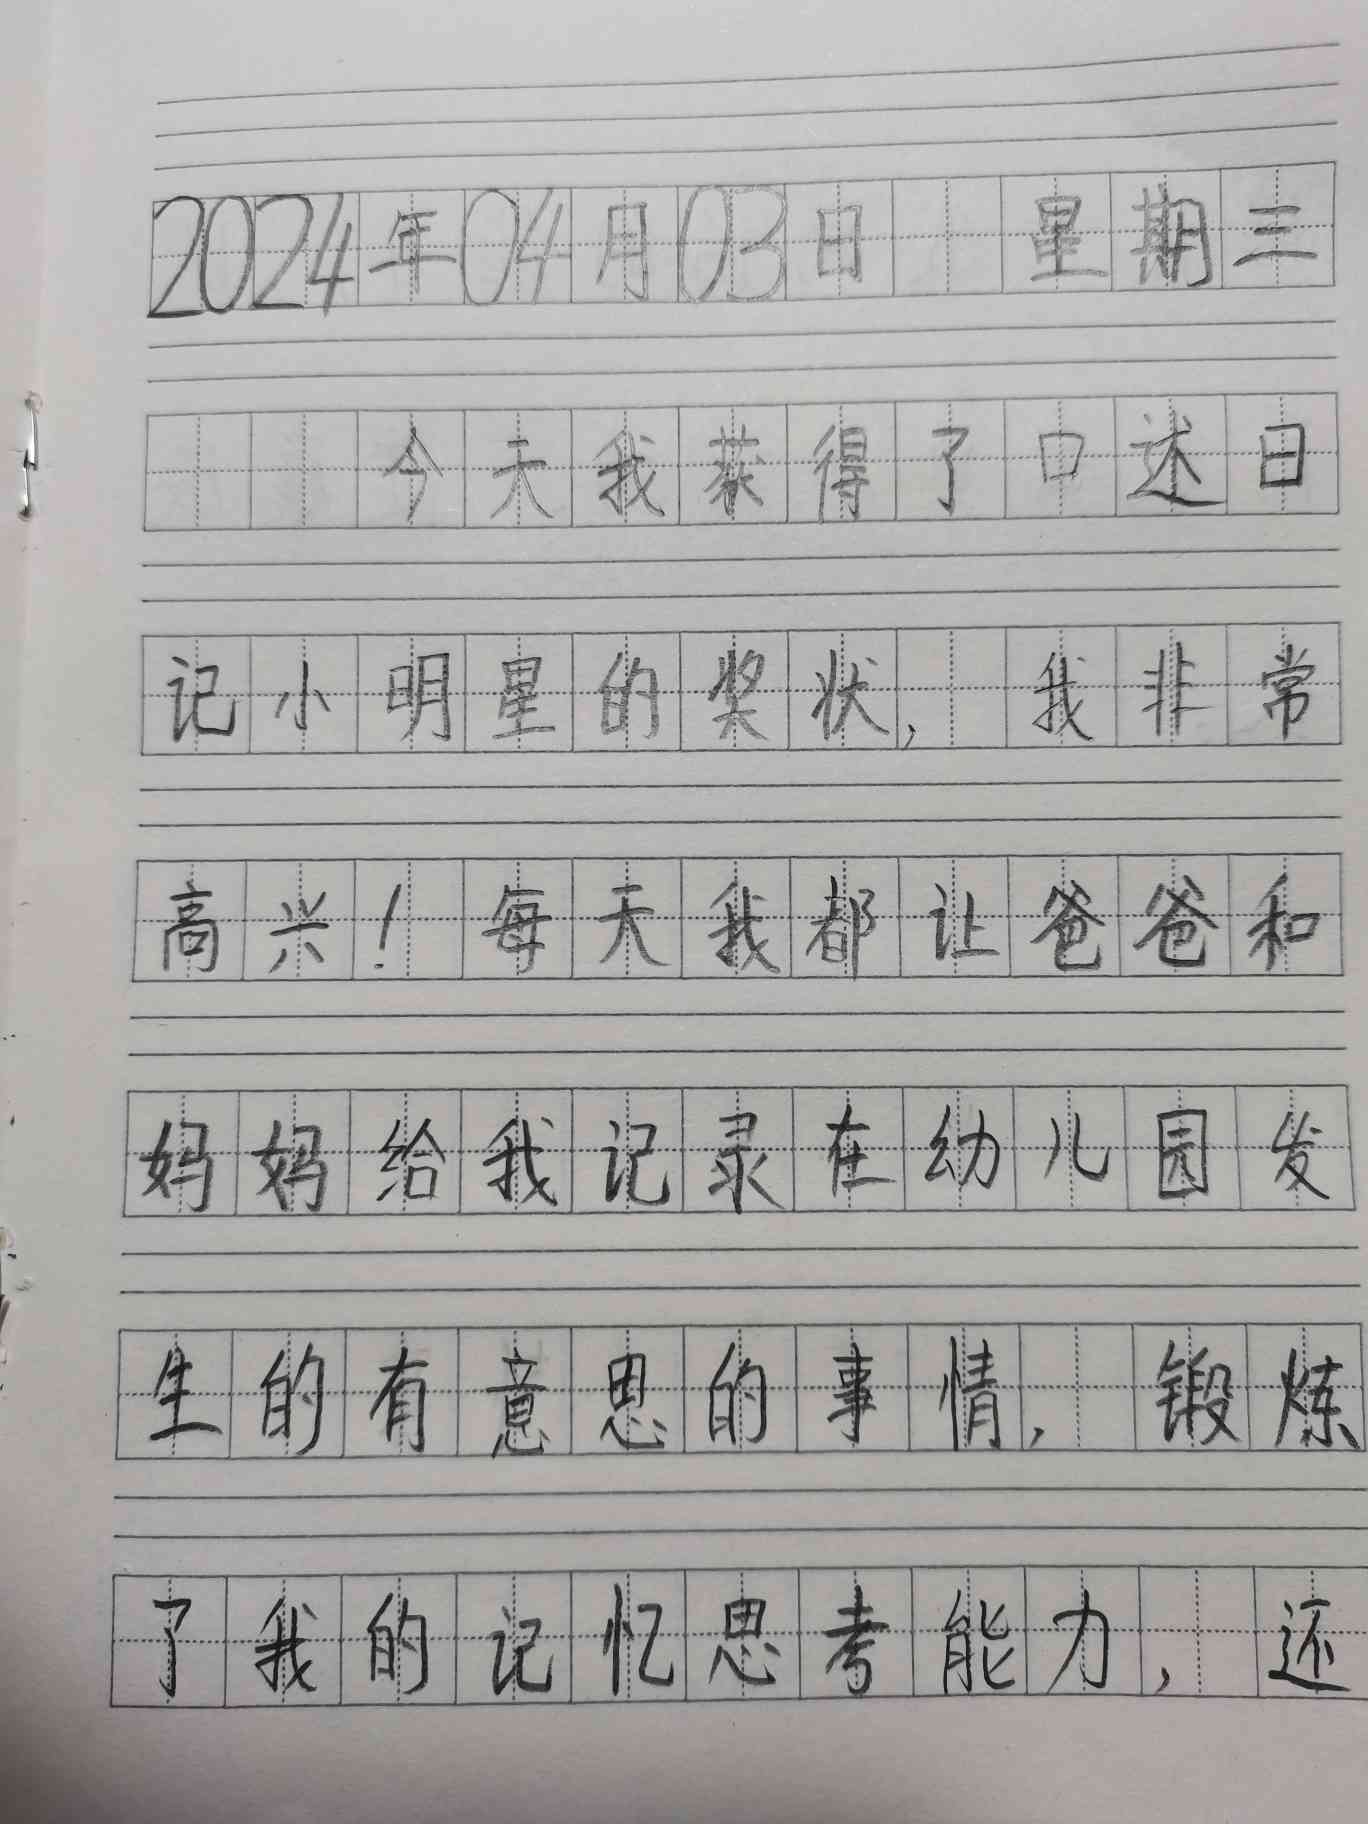 2024年04月03日 星期三
今天我获得了口述日
记小明星的奖状，我非常
高兴！每天我都让爸爸和
妈妈给我记录在幼儿园发
生的有意思的事情，锻炼
了我的记忆思考能力，还